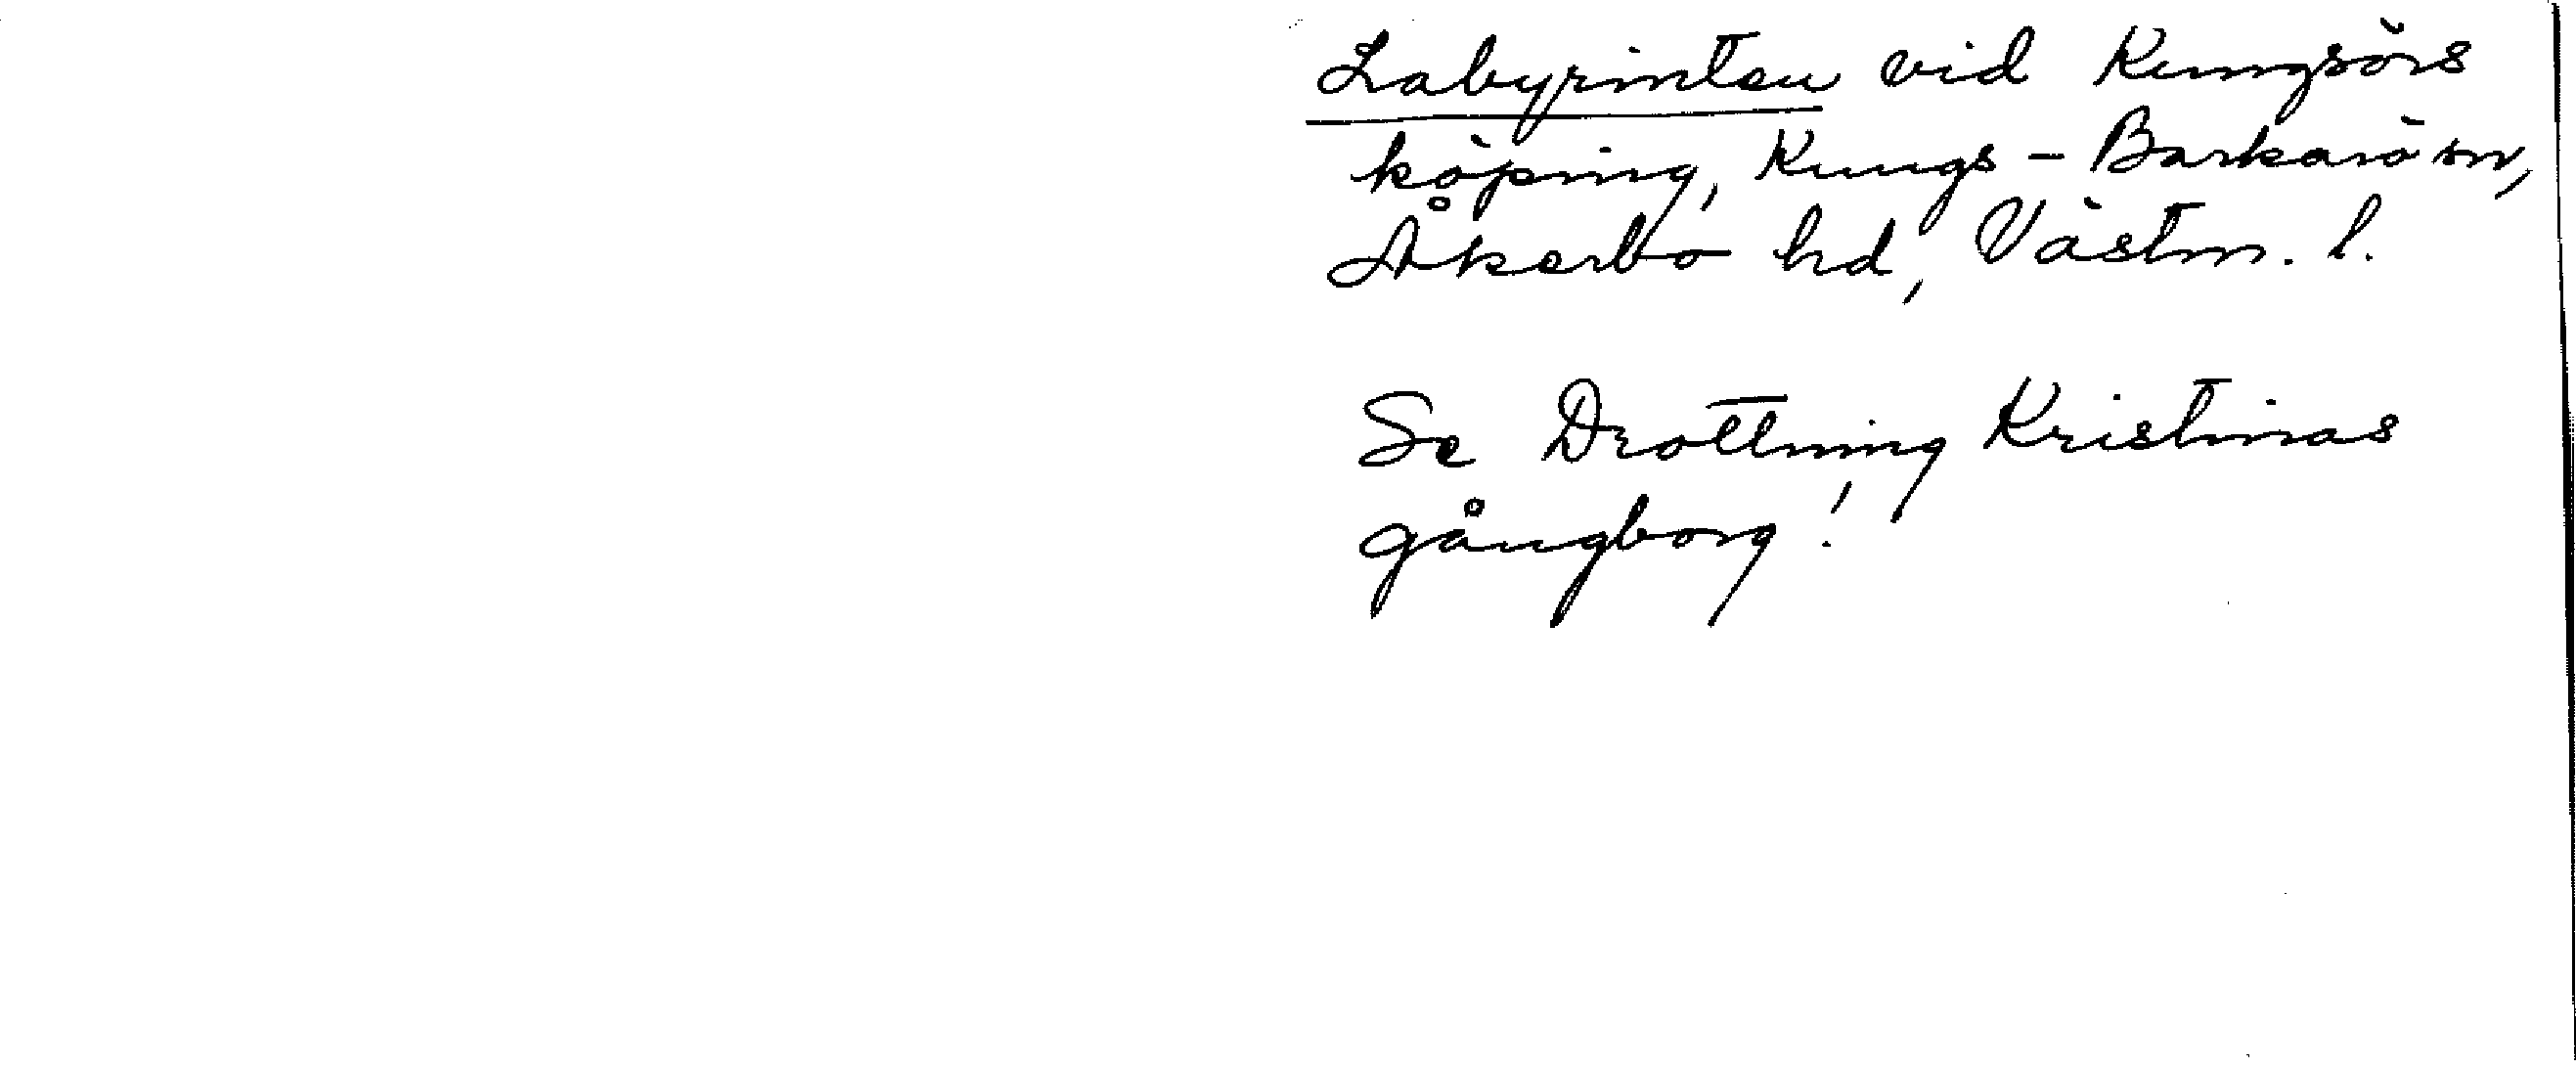 Labyrinten vid Kungsörs
köping, Kungs-Barkarö sn,
Åkerbo hd, Västm. l.
Se Drottning Kristinas
gångborg!